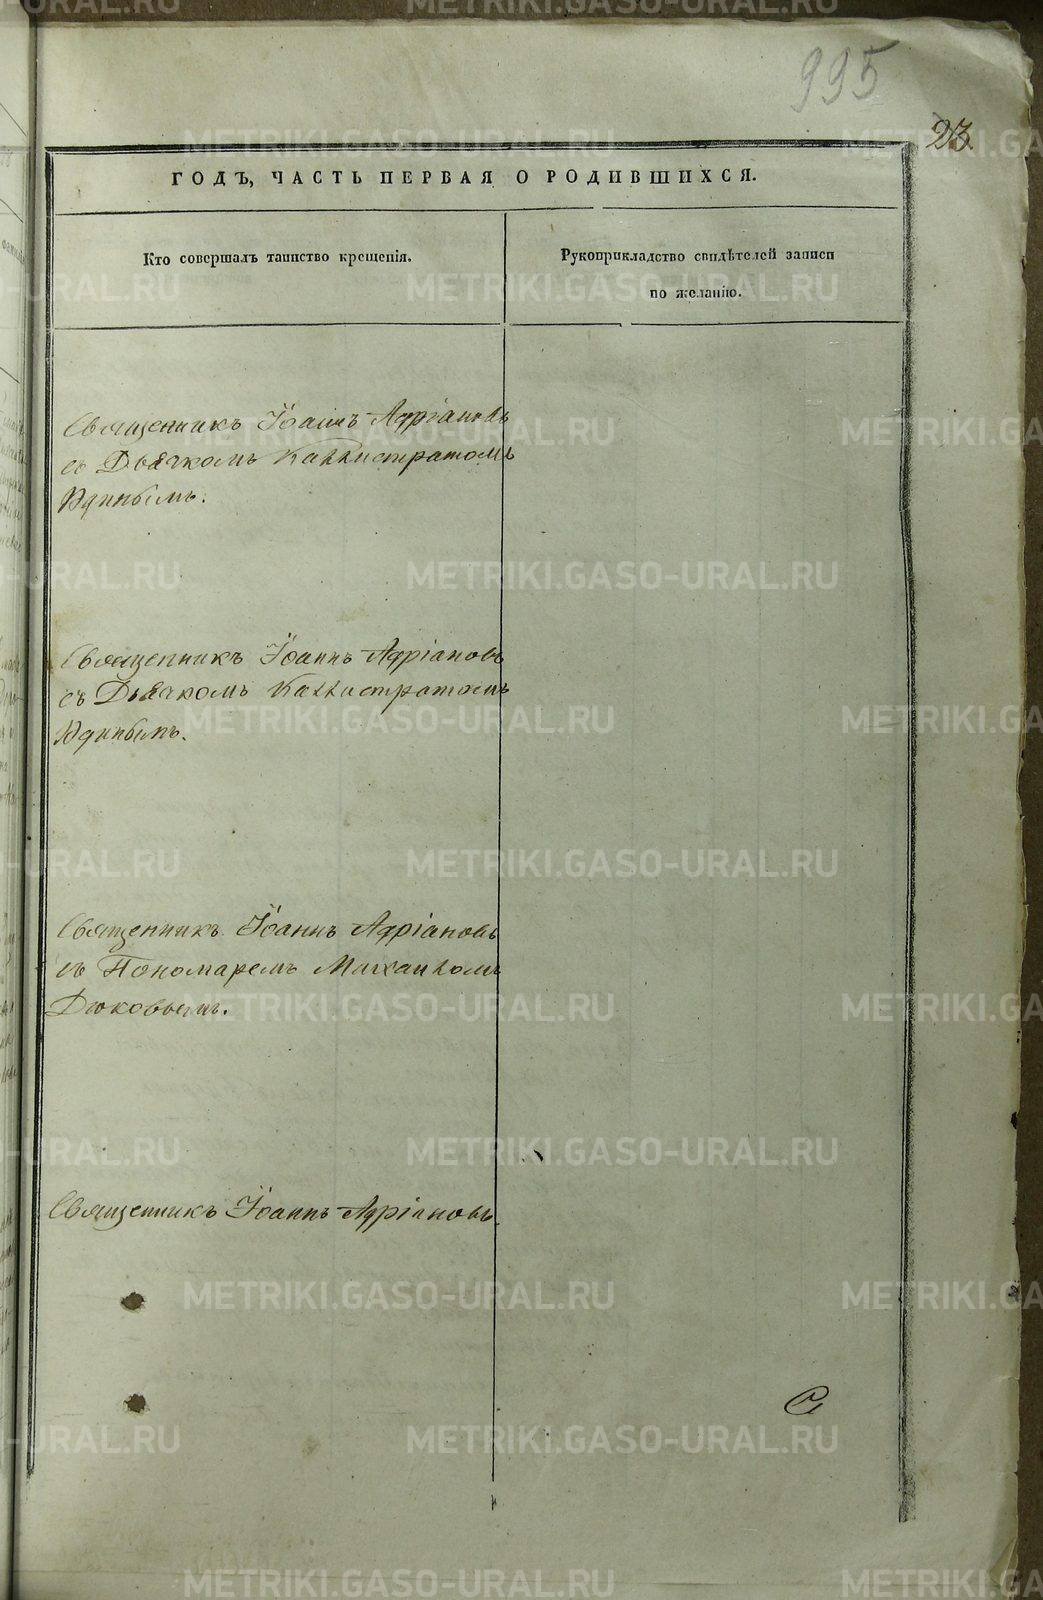 995
23
ГОДЪ, ЧАСТЬ ПЕРВАЯ О РОДИВШИХСЯ.
Кто совершалъ таинство крещенія.
Рукоприкладство свидѣтелей записи
по желанію.
Священникъ Іоаннъ Адріановъ
съ Дьячкомъ Каллистратомъ
Юдинымъ.
Священникъ Іоаннъ Адріановъ
съ Дьячкомъ Каллистратомъ
Юдинымъ.
Священникъ Іоаннъ Адріановъ
съ Пономаремъ Михаиломъ
Дюковымъ.
Священникъ Іоаннъ Адріановъ.
METRIKI.GASO-URAL.RU